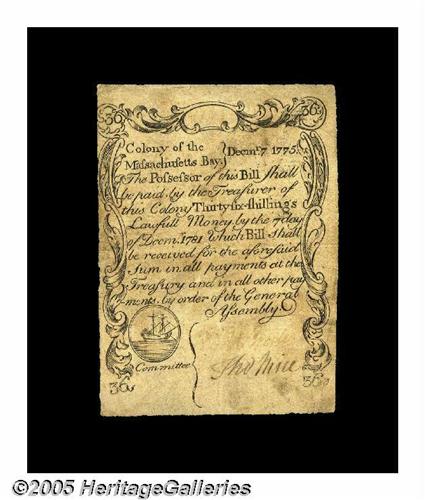 36s 36s
Colony of the } Decem.r 7 1775.
Massachusetts Bay.
The Possessor of this Bill shall
be paid, by the Treasurer of
this Colony Thirty six shillings
Lawfull Money, by the 7 day
of Decem. 1781 Which Bill shall
be received for the aforesaid
Sum in all payments at the
Treasury and in all other pay
ments. by order of the General
Assembly.
Committee
36s 36s
©2005 HeritageGalleries